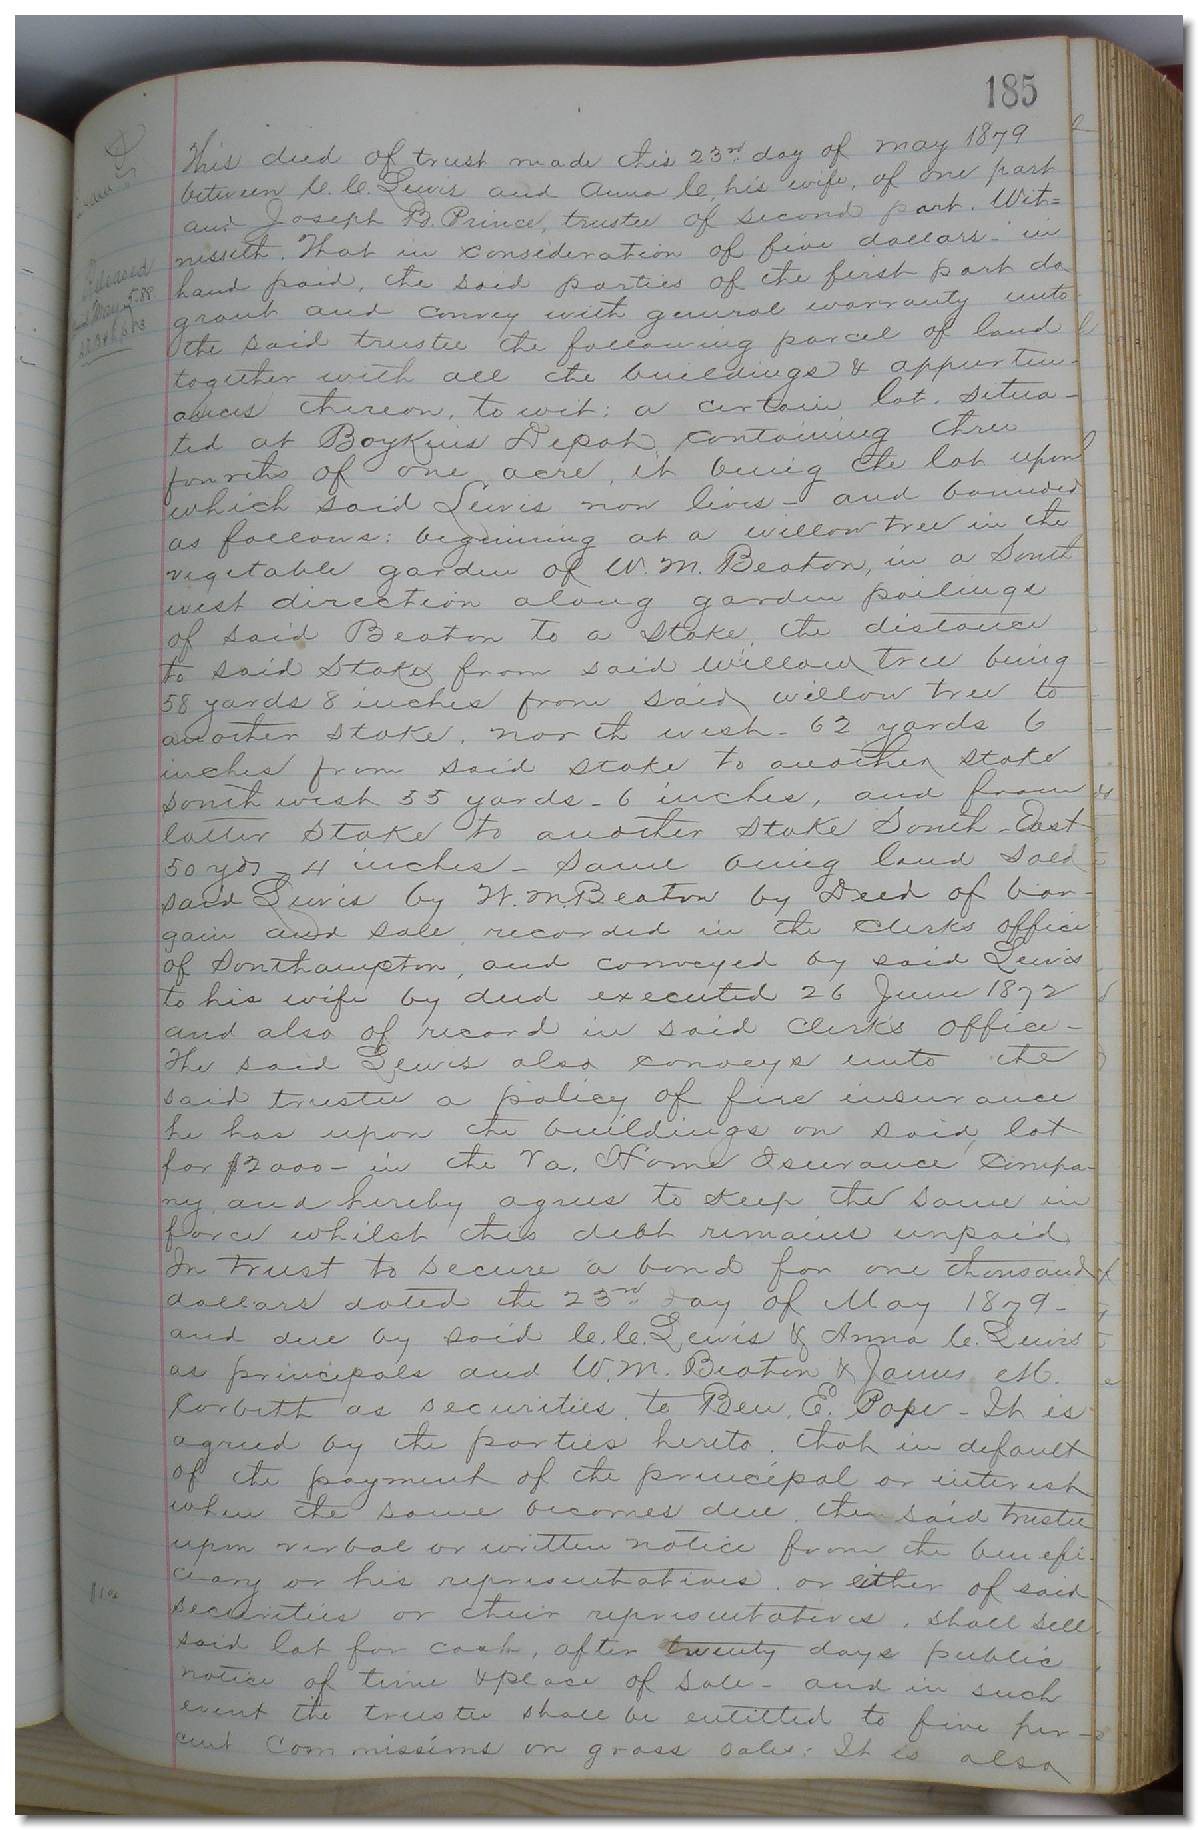 185
This deed of trust made this 23rd day of May 1879
between C. C. Lewis and Anna C, his wife, of one part
and Joseph B. Prince, trustee of second part. Wit=
nisseth. That in consideration of five dollars - in
hand paid, the said parties of the first part do
grant and convey with general warranty unto
the said trustee the following parcel of land
together with all the buildings & appurten-
ances thereon, to wit: a certain lot. situa-
ted at Boykins Depot, containing three
fourths of one acre, it being the lot upon
which said Lewis now lives - and bounded
as follows: beginning at a willow tree in the
vegetable garden of W. M. Beaton, in a South
west direction along garden pailings
of said Beaton to a Stake, the distance
to said Stake from said willow tree being
58 yards 8 inches from said willow tree to
another stake. north west - 62 yards 6
inches from said stake to another stake
South west 55 yards - 6 inches, and from
latter Stake to another Stake South - East
50 yds - 4 inches - Same being land sold
said Lewis by W. M. Beaton by Deed of bar-
gain and sale, recorded in the Clerks office
of Southampton, and conveyed by said Lewis
to his wife by deed executed 26 June 1872
and also of record in said clerk's office -
The said Lewis also conveys unto the
said trustee a policy of fire insurance
he has upon the buildings on said lot
for $2000 - in the Va. Home Isurance Compa-
ny, and hereby agrees to keep the same in
force whilst this debt remains unpaid
In trust to secure a bond for one thousand
dollars dated the 23rd day of May 1879 -
and due by said C. C. Lewis & Anna C. Lewis
as principals and W. M. Beaton & James M.
Corbett as securities, to Ben. E. Pope - It is
agreed by the parties hereto, that in default
of the payment of the principal or interest
when the same becomes due, the said trustee
upon verbal or written notice from the benefi-
ciary or his representatives, or either of said
securities or their representatives, shall sell
said lot for cash, after twenty days public
notice of time & place of sale - and in such
event the trustee shall be entitled to five per-
cent Commissions on gross sales: It is also